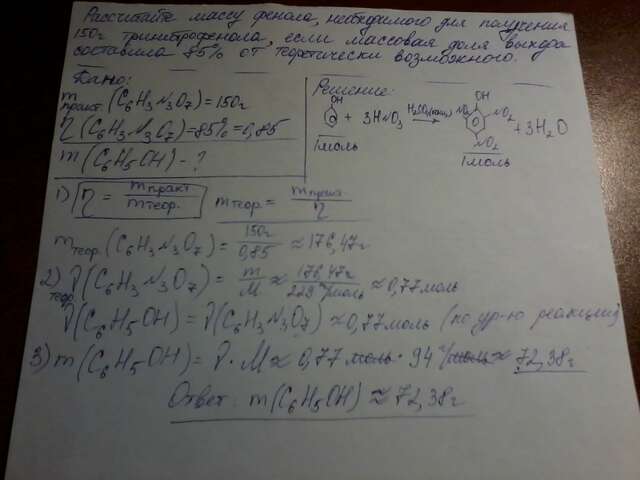 Рассчитайте массу фенола, необходимого для получения
150г тринитрофенола, если массовая доля выхода
составила 85% от теоретически возможного.
Дано:
m практ. (C6H3N3O7) = 150г
η (C6H3N3O7) = 85% = 0,85
m (C6H5OH) - ?
Решение:
OH + 3HNO3 H2SO4(конц) → OH NO2 NO2 NO2 + 3H2O
1моль 1моль
1) η = m практ / m теор. m теор. = m практ. / η
m теор. (C6H3N3O7) = 150г / 0,85 ≈ 176,47г
2) ν теор. (C6H3N3O7) = m / M ≈ 176,47г / 229 г/моль ≈ 0,77моль
ν(C6H5OH) = ν(C6H3N3O7) ≈ 0,77моль (по ур-ю реакции)
3) m (C6H5OH) = ν · M ≈ 0,77 моль · 94 г/моль ≈ 72,38г
Ответ: m (C6H5OH) ≈ 72,38г